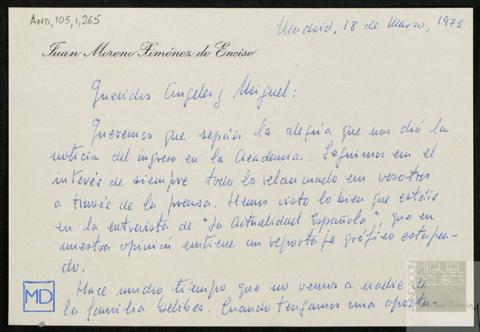 AMD, 105, 1, 265
Madrid, 18 de Marzo, 1973
Juan Moreno Ximénez de Enciso
Queridos Angeles y Miguel:
Queremos que sepáis la alegría que nos dió la
noticia del ingreso en la Academia. Seguimos con el
interés de siempre todo lo relacionado con vosotros
a través de la prensa. Hemos visto lo bien que estáis
en la entrevista de "La Actualidad Española", que en
nuestra opinión contiene un reportaje gráfico estupen-
do.
Hace mucho tiempo que no vemos a nadie de
la familia Delibes. Cuando tengamos una oportu-
MD
FUNDACIÓN
MIGUEL
DELIBES